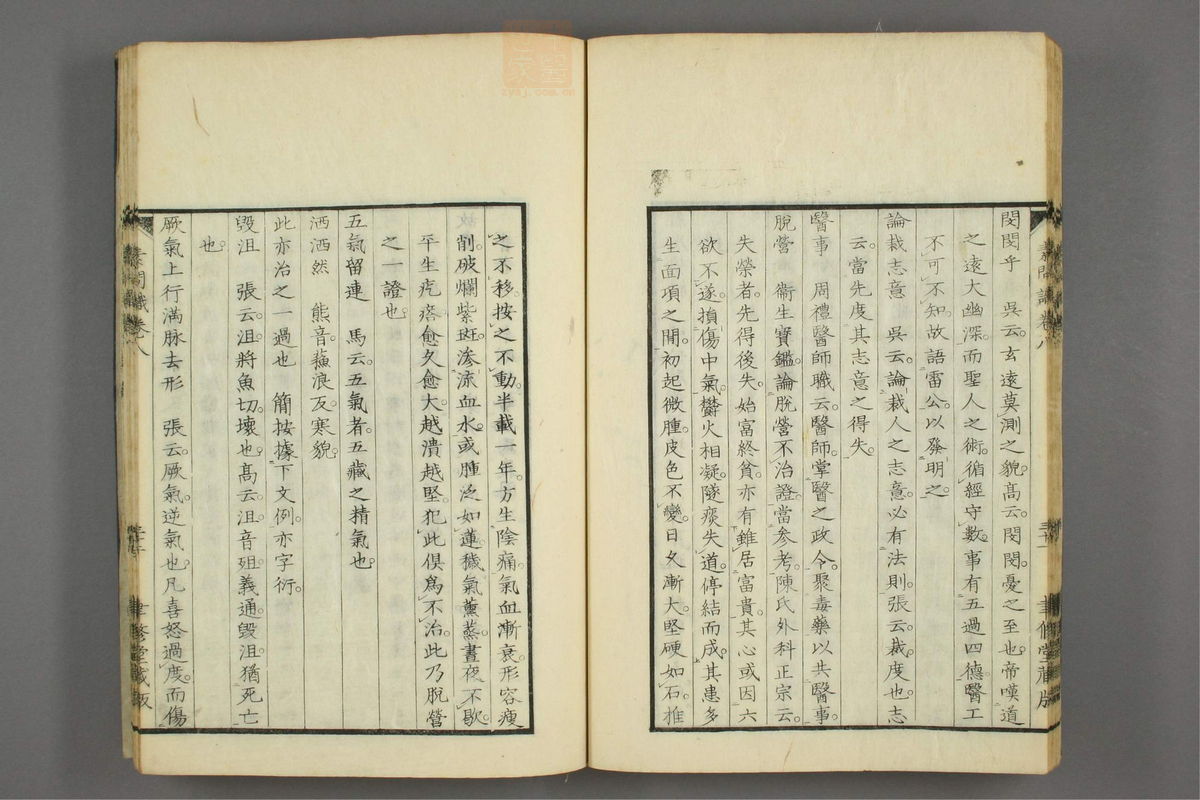 閔閔乎　吳云。玄遠莫測之貌。高云。閔閔。憂之至也。帝嘆道
之遠大幽深。而聖人之術。循經守數。事有五過四德。醫工
不可不知。故語雷公。以發明之。
論裁志意　吳云。論裁人之志意。必有法則。張云。裁。度也。志
云。當先度其志意之得失。
醫事　周禮醫師職云。醫師。掌醫之政令。聚毒藥以共醫事。
脫營　衞生寶鑑。論脫營不治證。當參考。陳氏外科正宗云。
失榮者。先得後失。始富終貧。亦有雖居富貴。其心或因六
欲不遂。損傷中氣。鬱火相凝。隧痰失道。停結而成。其患多
生面項之間。初起微腫。皮色不變。日久漸大。堅硬如石。推
之不移。按之不動。半載一年。方生陰痛。氣血漸衰。形容瘦
削。破爛紫斑。滲流血水。或腫泛如蓮。穢氣薰蒸。晝夜不歇。
平生疙瘩。愈久愈大。越潰越堅。犯此俱爲不治。此乃脫營
之一證也。
五氣留連　馬云。五氣者。五藏之精氣也。
洒洒然　熊音。蘓浪反。寒貌。
此亦治之一過也　簡按據下文例。亦字衍。
毀沮　張云。沮。將魚切。壞也。高云。沮音殂。義通。毀沮。猶死亡
也。
厥氣上行滿脉去形　張云。厥氣。逆氣也。凡喜怒過度。而傷
素問識卷八
三十一
聿修堂藏版
素問識卷八
聿修堂藏版
zysj.com.cn